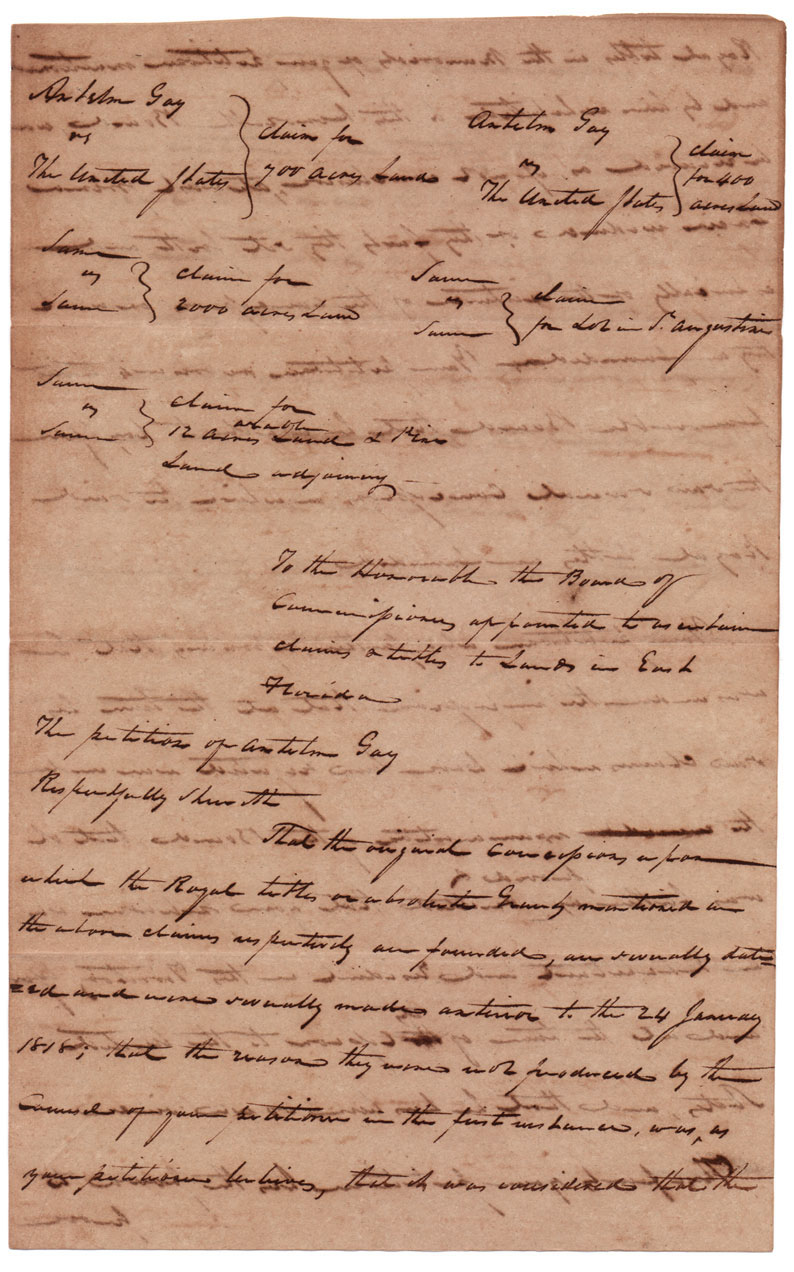 Antelm Gay
vs
The United States
claim for
700 acres Land
Antelm Gay
vs
The United States
claim
for 400
acres Land
Same
vs
Same
claim for
2000 acres Land
Same
vs
Same
claim
for Lot in St. Augustine
Same
vs
Same
claim for
12 acres arable Land & Pine
Land adjoining
To the Honorable the Board of
Commissioners appointed to ascertain
claims & titles to Lands in East
Florida
The petition of Antelm Gay
Respectfully Sheweth
That the original Concessions upon
which the Royal titles or absolute Grants mentioned in
the above claims respectively are founded, are severally dat=
=ed and were severally made anterior to the 24 January
1818; that the reason they were not produced by the
Counsel of your petitioner in the first instance, was, as
your petitioner believes, that it was considered that the